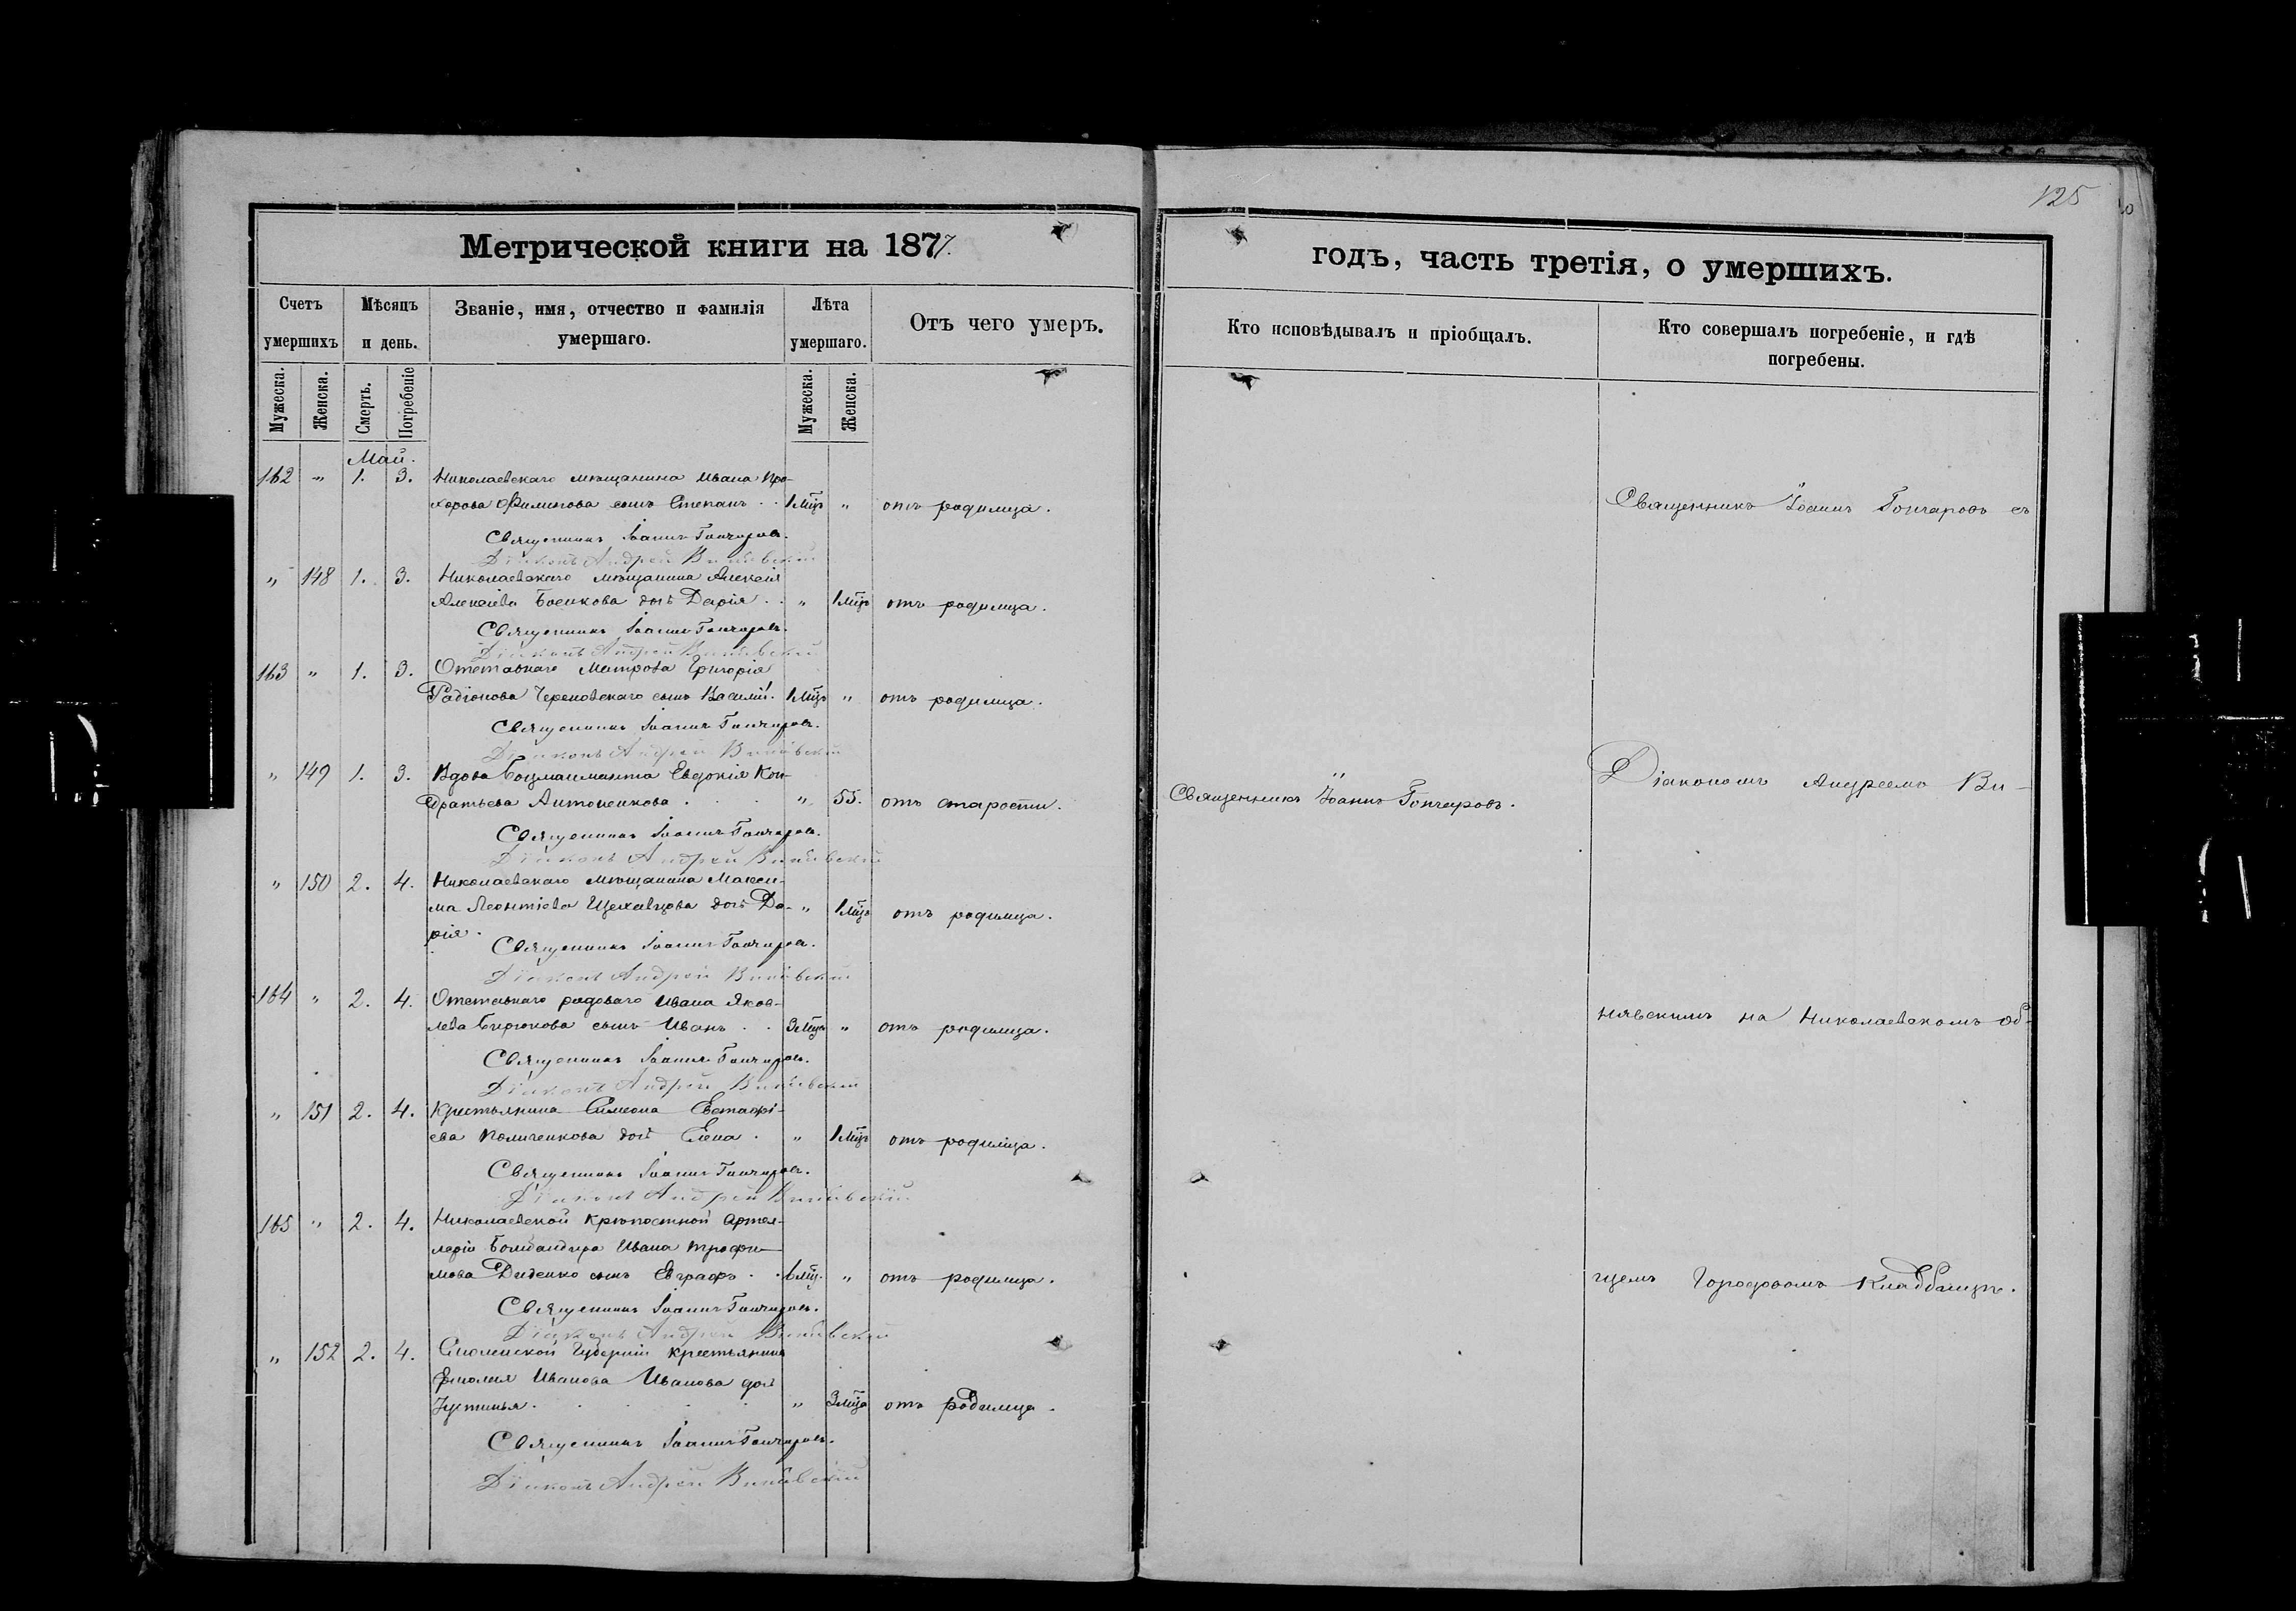 125
Метрической книги на 1877.
годъ, часть третія, о умершихъ.
Счетъ умершихъ
Мѣсяцъ и день.
Званіе, имя, отчество и фамилія умершаго.
Лѣта умершаго.
Отъ чего умеръ.
Кто исповѣдывалъ и пріобщалъ.
Кто совершалъ погребеніе, и гдѣ погребены.
Мужеска.
Женска.
Смерть.
Погребеніе
Мужеска.
Женска.
Май.
162 " 1. 3. Николаевскаго мѣщанина Ивана Про-
хорова Филипова сынъ Степанъ . . 1 мца " отъ родимца.
Священникъ Іоаннъ Гончаровъ.
Діаконъ Андрей
" 148 1. 3. Николаевскаго мѣщанина Алексія
Алексіева Боенкова дочь Дарія . . " 1 мца отъ родимца.
Священникъ Іоаннъ Гончаровъ.
Діаконъ Андрей
163 " 1. 3. Отставнаго Матроса Григорія
Радіонова Череповскаго сынъ Василій. 1 мца " отъ родимца.
Священникъ Іоаннъ Гончаровъ.
Діаконъ Андрей
" 149 1. 3. Вдова Боцманманта Евдокія Кон-
дратьева Антоненкова . . . " 55. отъ старости.
Священникъ Іоаннъ Гончаровъ.
Діаконъ Андрей
" 150 2. 4. Николаевскаго мѣщанина Макси-
ма Леонтіева дочь Да- " 1 мца отъ родимца.
рія.
Священникъ Іоаннъ Гончаровъ.
Діаконъ Андрей
164 " 2. 4. Отставнаго рядоваго Ивана Яков-
лева Бирюкова сынъ Иванъ . . 3 мца " отъ родимца.
Священникъ Іоаннъ Гончаровъ.
Діаконъ Андрей
" 151 2. 4. Крестьянина Симеона Евстафі-
ева Количенкова дочь Елена . " 1 мца отъ родимца.
Священникъ Іоаннъ Гончаровъ.
Діаконъ Андрей
165 " 2. 4. Николаевской крѣпостной Артил-
леріи Бомбандира Ивана Трофи-
мова Диденко сынъ Евграфъ . . 6 мц. " отъ родимца.
Священникъ Іоаннъ Гончаровъ.
Діаконъ Андрей
" 152 2. 4. Смоленской Губерніи крестьянина
Иванова Иванова дочь
Устинья . . . . " 3 мца отъ родимца.
Священникъ Іоаннъ Гончаровъ.
Діаконъ Андрей
Священникъ Іоаннъ Гончаровъ.
Священникъ Іоаннъ Гончаровъ съ
Діакономъ Андреемъ Ви-
нявскимъ на Николаевскомъ об-
щемъ Городовомъ Кладбищѣ.